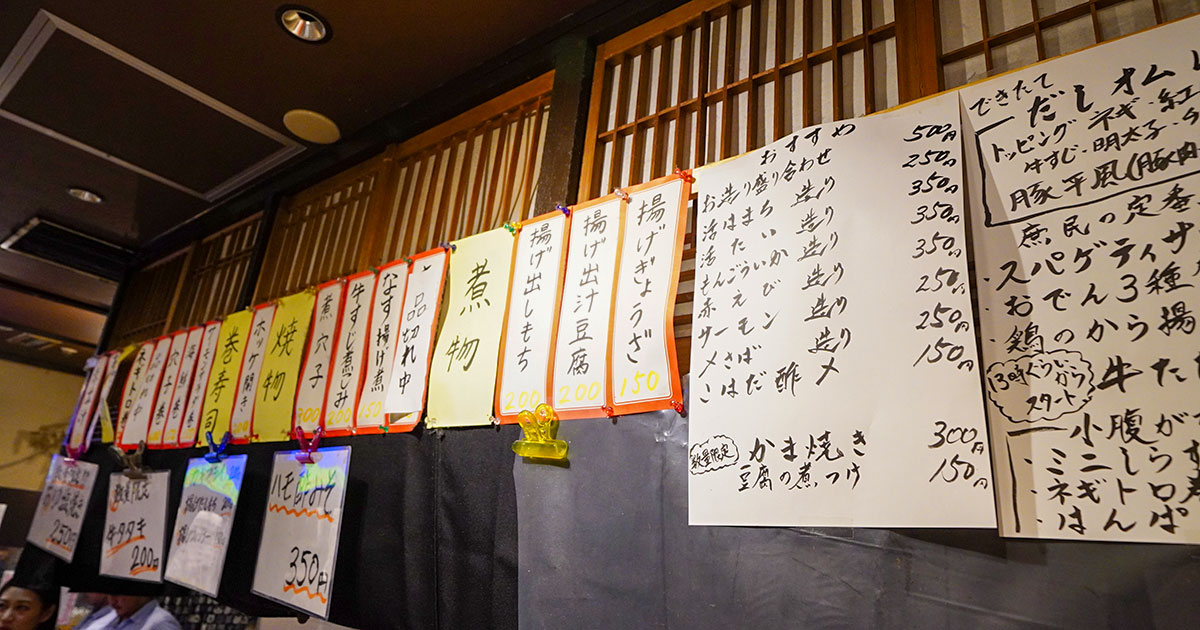 できたて
だしオムレ
トッピング ネギ・紅
牛すじ・明太子・
豚平風(豚肉
庶民の定番
・スパゲティサ
おでん3種
鶏のから揚
13時ぐらいから
スタート
牛たた
小腹が
・ミニしらす
・ネギトロ
・はんぱ
おすすめ
お造り盛り合わせ 500円
活はまち 造り 250円
活たい 造り 350円
もんごういか 造り 350円
赤えび 造り 350円
サーモン 造り 250円
〆さば 造り 250円
こはだ酢〆 150円
数量限定
かま焼き 300円
豆腐の煮つけ 150円
揚げぎょうざ
150
揚げ出汁豆腐
200
揚げ出しもち
200
煮物
品切れ中
なす揚げ煮
150
牛すじ煮こみ
200
煮穴子
300
焼物
ホッケ開き
巻寿司
穴子巻
品切れ中
ネギトロ巻
ハモ
350円
数量限定
牛タタキ
200円
250円